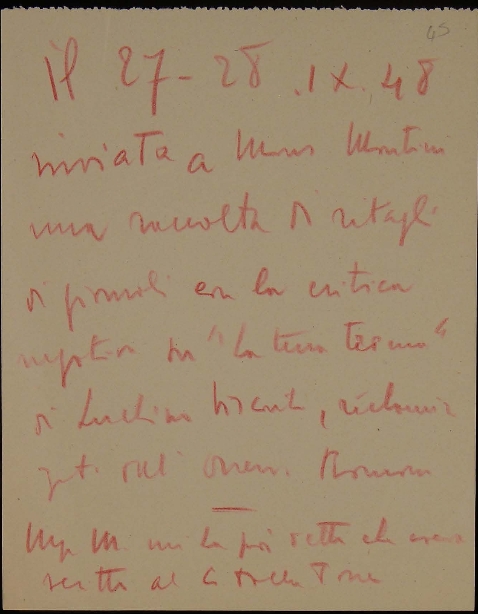 45
Il 27-28.IX.48
inviata a Mons Montini
una raccolta di ritagli
di giornali con la critica
negativa su "La terra trema"
di Luchino Visconti,
dall' Osserv. Romano
Mgr M. mi ha poi detto che aveva
al